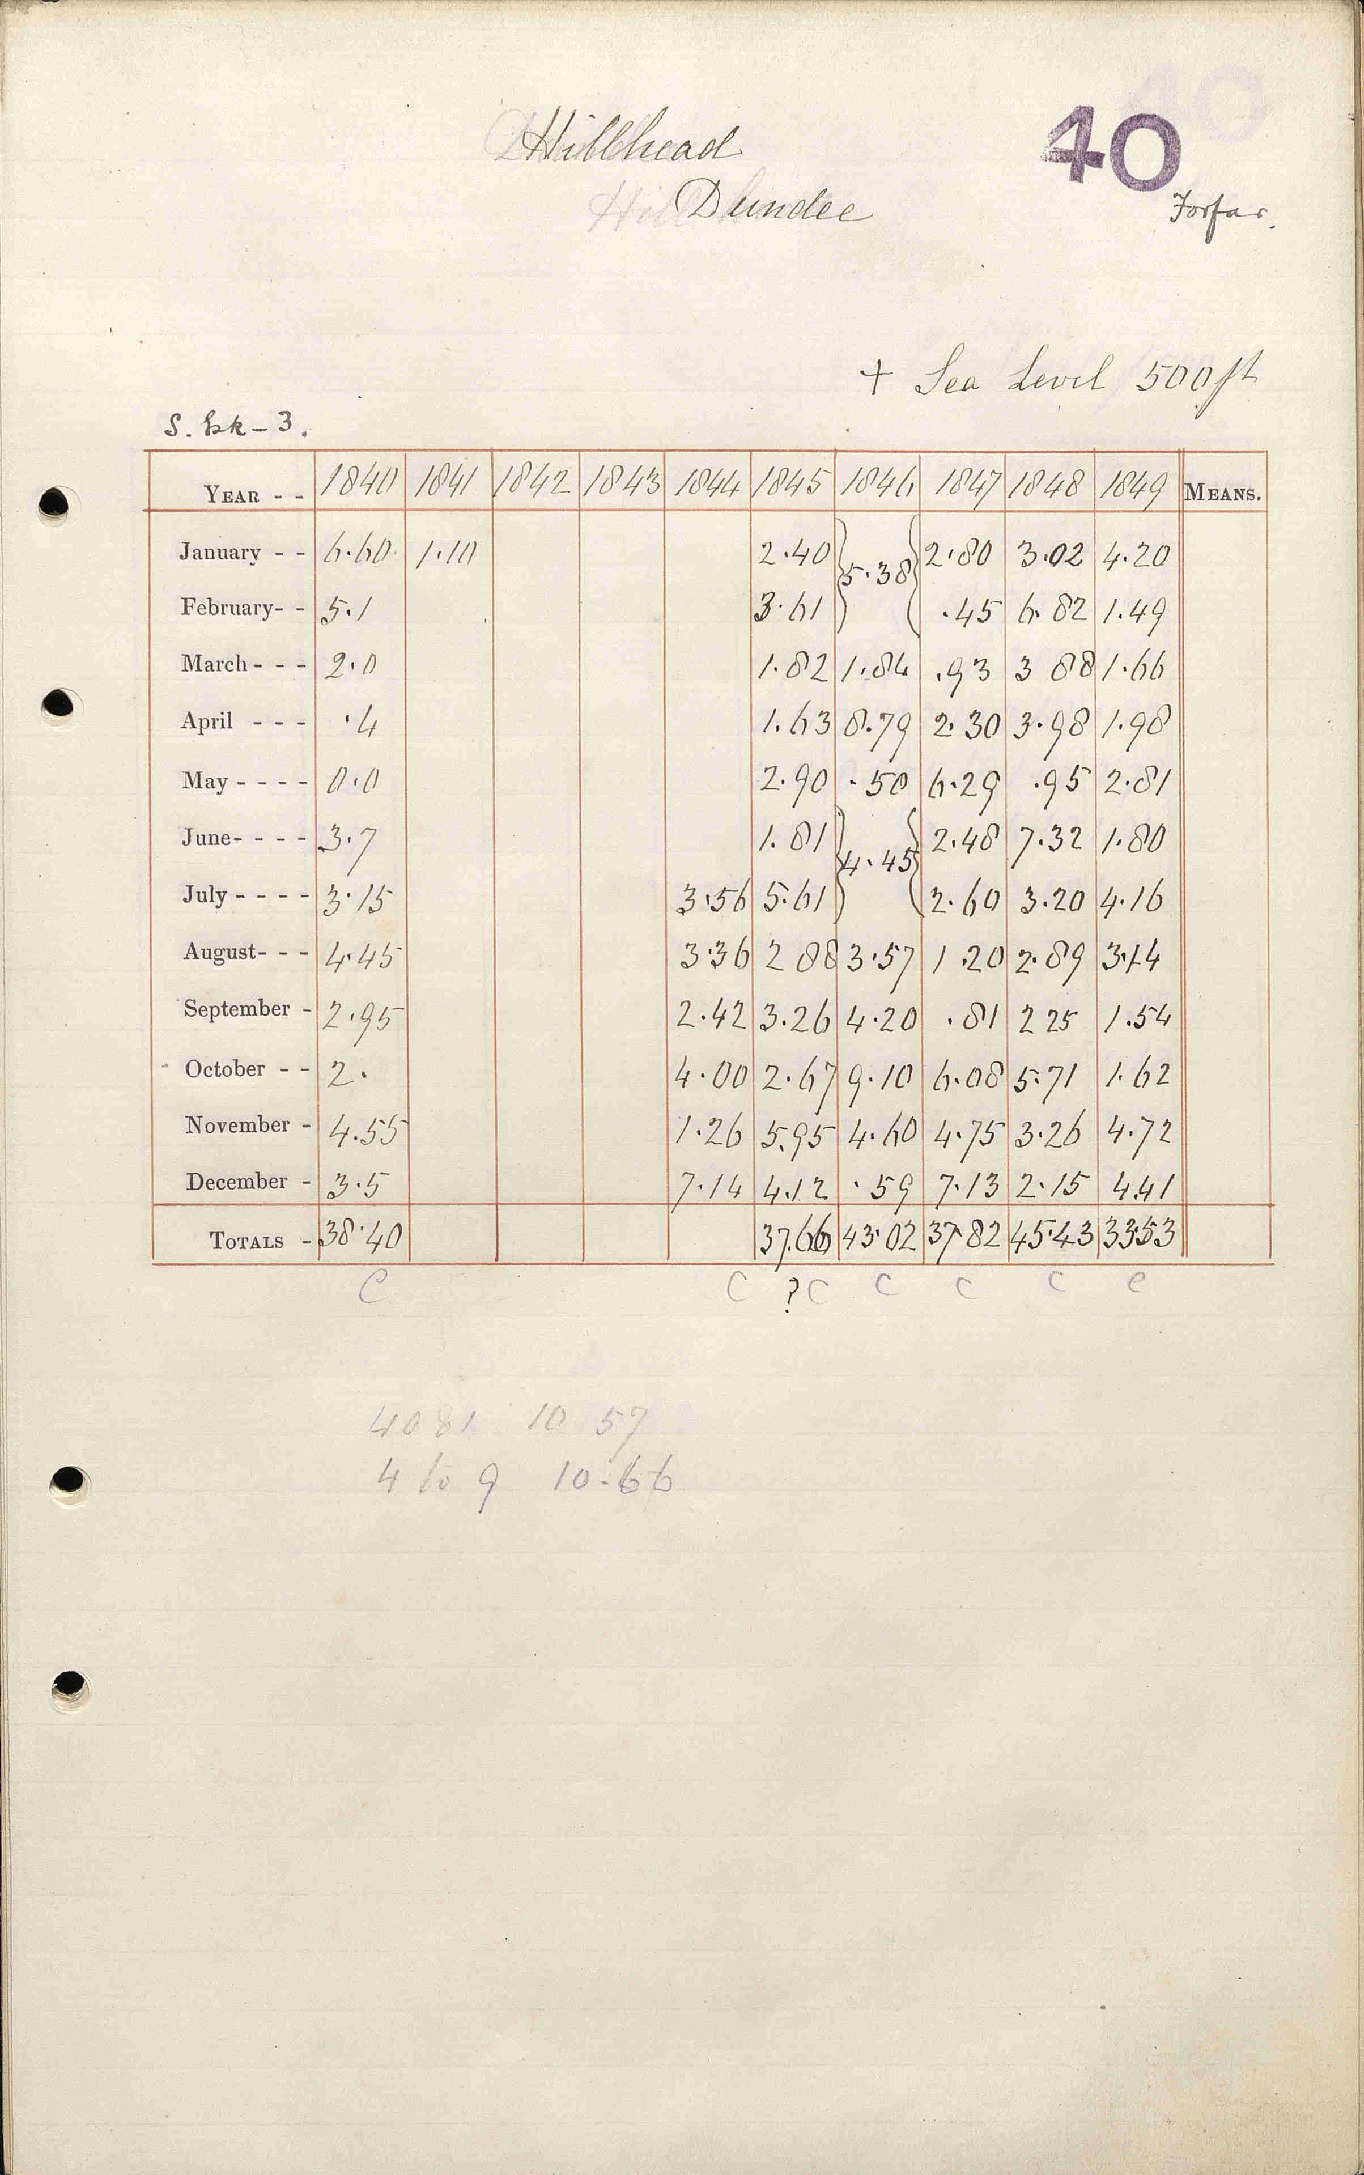 40
Hillhead
Dundee
Forfar.
+ Sea Level 500 ft
S. Esk - 3.
YEAR - - 1840 1841 1842 1843 1844 1845 1846 1847 1848 1849 MEANS.
January - - 6.60 1.10 2.40 } 5.38 { 2.80 3.02 4.20
February - - 5.1 3.61 .45 6.82 1.49
March - - - 2.0 1.82 1.84 .93 3 88 1.66
April - - - .4 1.63 8.79 2.30 3.98 1.98
May - - - - 0.0 2.90 .50 6.29 .95 2.81
June - - - - 3.7 1.81 } 4.45 { 2.48 7.32 1.80
July - - - - 3.15 3.56 5.61 2.60 3.20 4.16
August - - - 4.45 3.36 2 88 3.57 1.20 2.89 3.14
September - 2.95 2.42 3.26 4.20 .81 2 25 1.54
October - - 2. 4.00 2.67 9.10 6.08 5.71 1.62
November - 4.55 1.26 5.95 4.60 4.75 3.26 4.72
December - 3.5 7.14 4.12 .59 7.13 2.15 4.41
TOTALS - 38.40 37.66 43.02 37.82 45.43 33.53
C C ? C C C C C
40 81 10 57
4 to 9 10.66